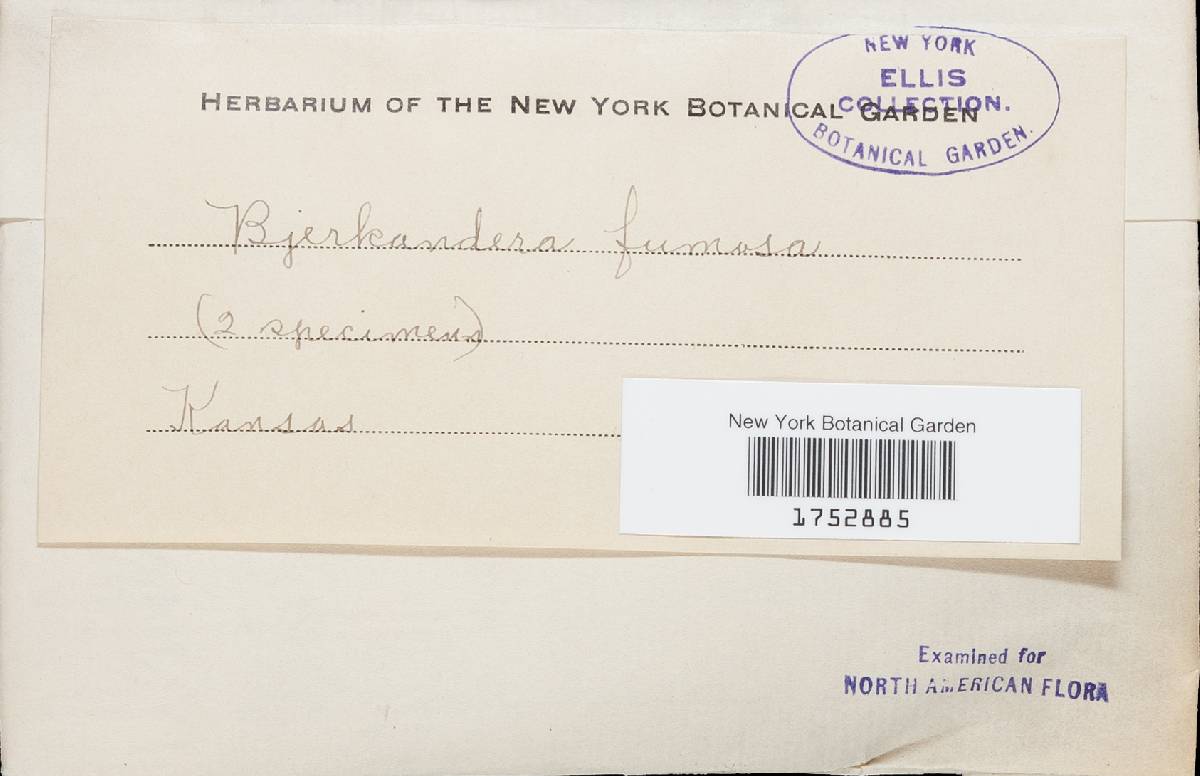 NEW YORK
ELLIS
COLLECTION.
BOTANICAL GARDEN.
HERBARIUM OF THE NEW YORK BOTANICAL GARDEN
Bjerkandera fumosa
(2 specimens)
Kansas
New York Botanical Garden
1752885
Examined for
NORTH AMERICAN FLORA